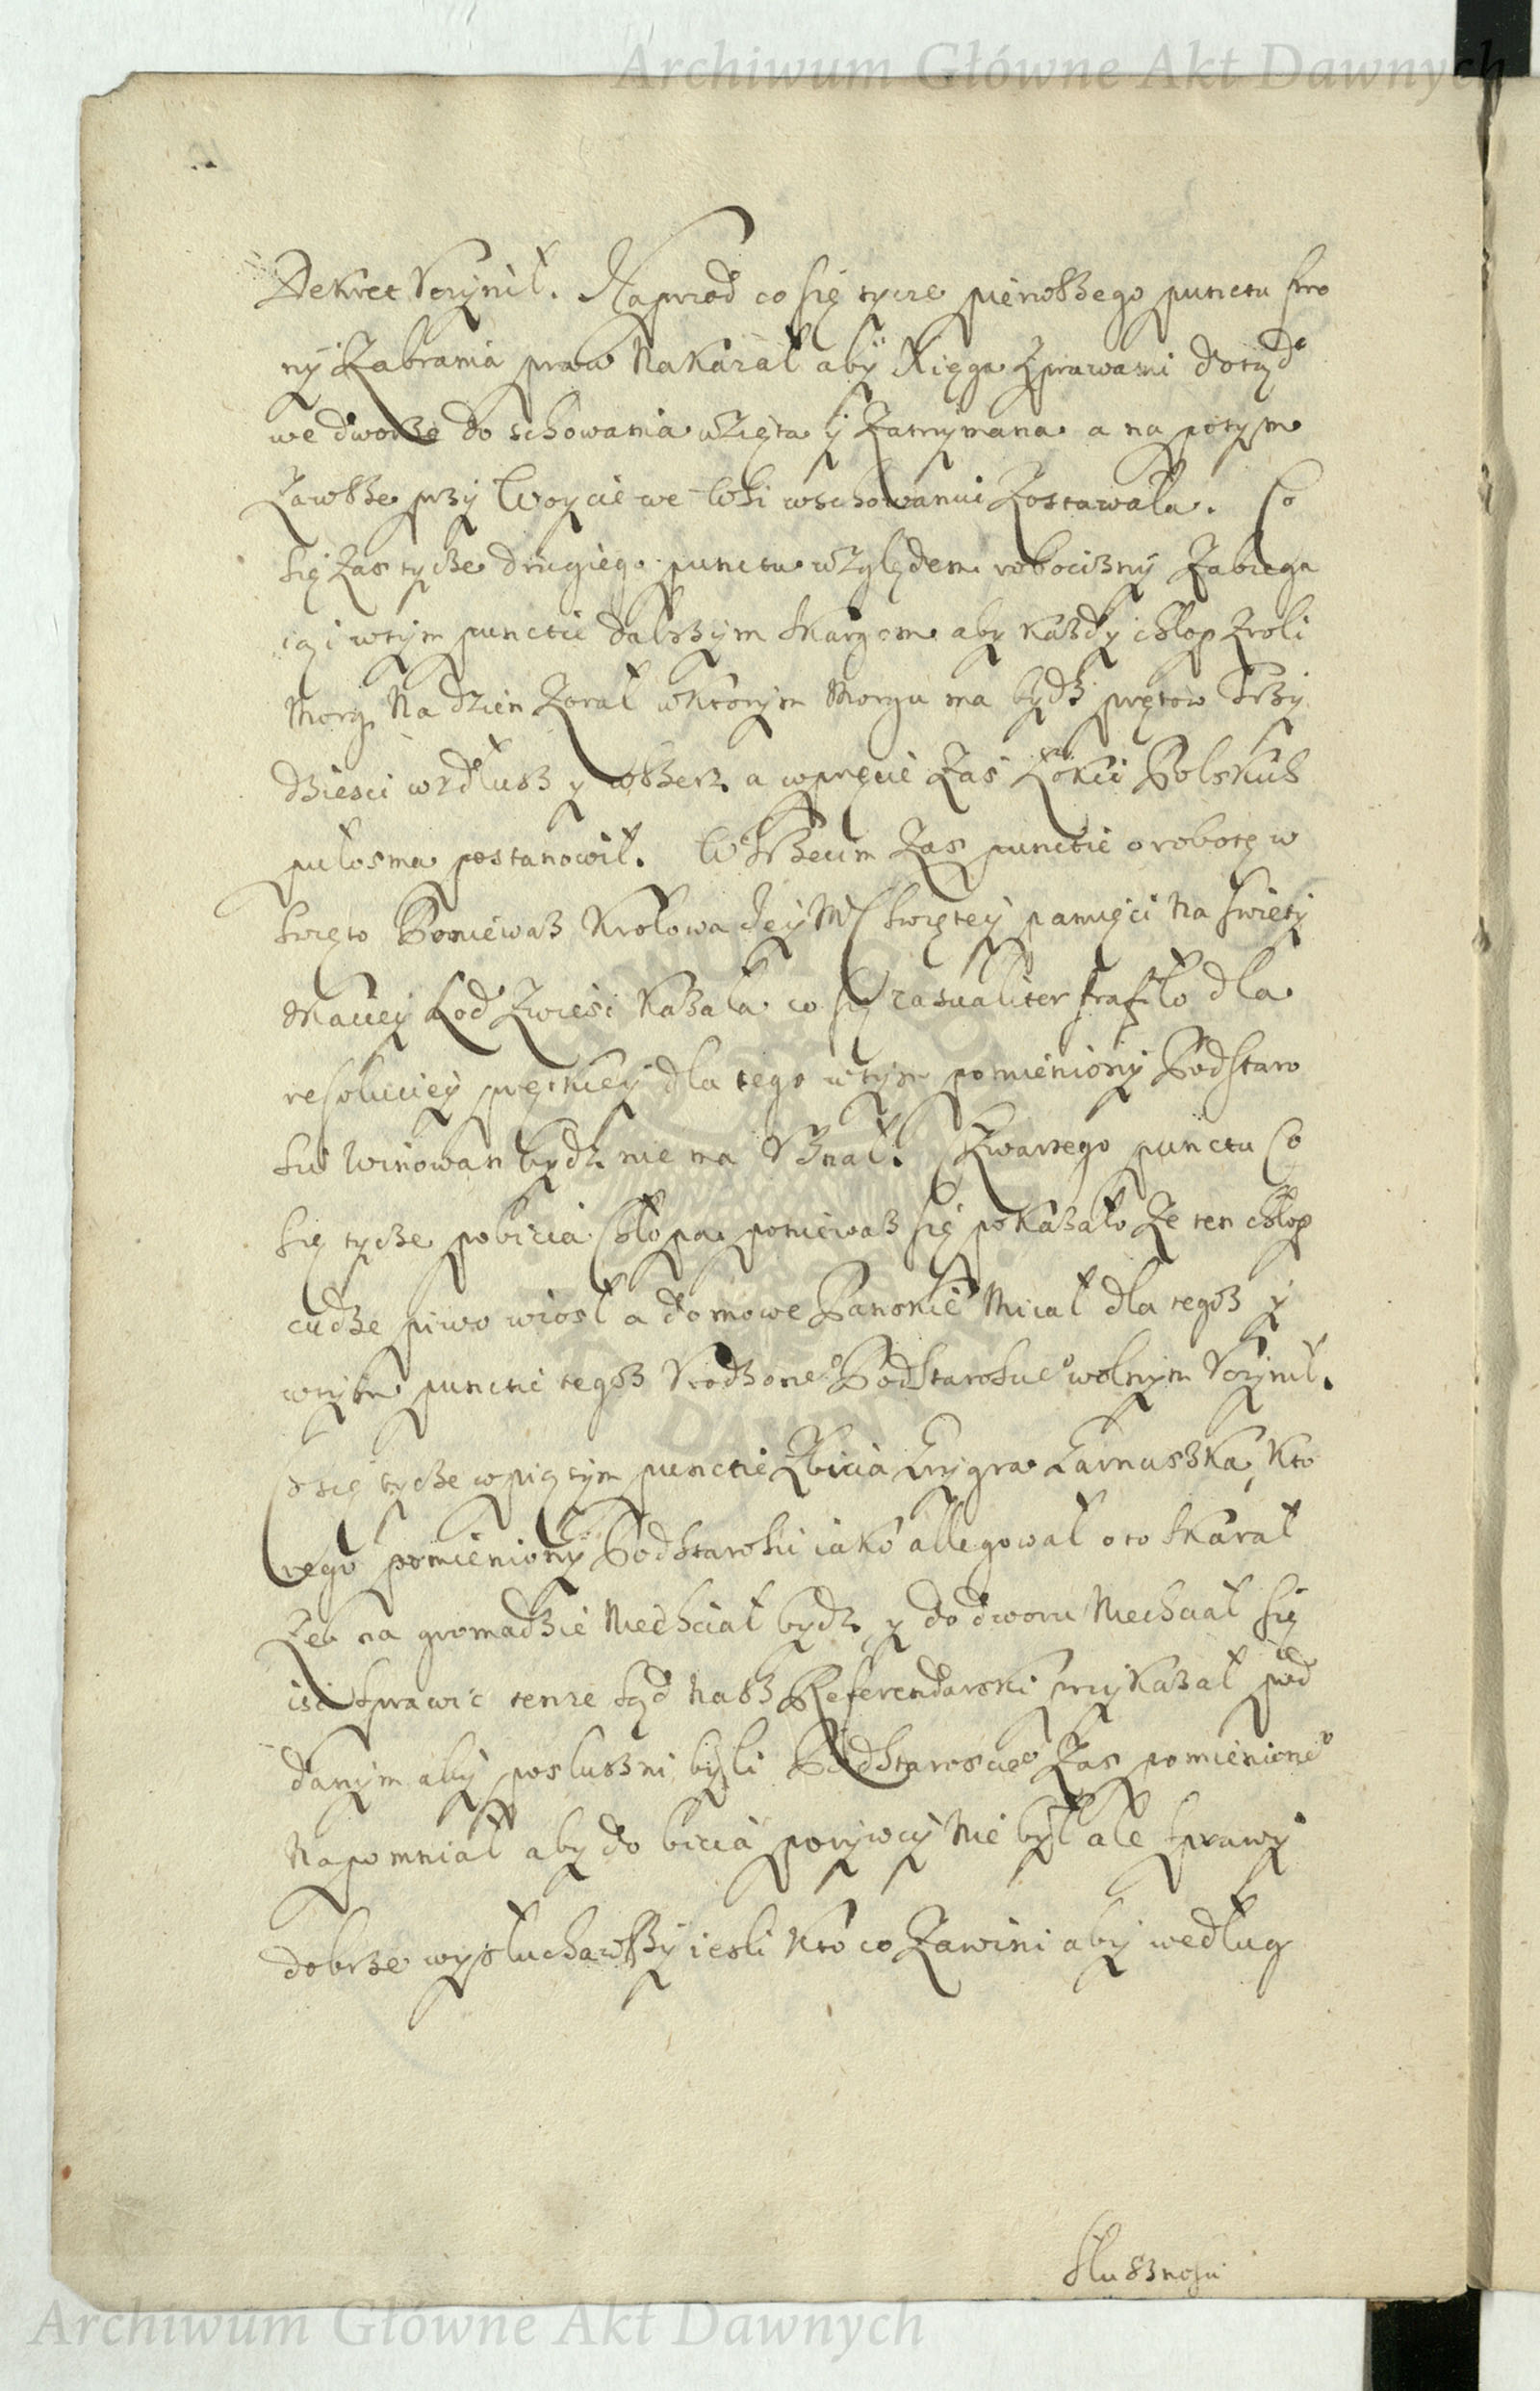 Archiwum Główne Akt Dawnych
Dekret Uczynił. Naprzod co się tycze pierwszego punctu stro
ny Zabrania praw Nakazał aby Xięga Zprawami dotąd
we dworze do schowania wzięta y Zatrzymana a na potym
Zawsze przy Woycie we Wsi wschowaniu Zostawała. Co
się Zas tycze drugiego punctu względem robocizny Zabiega
iąc wtym punctie dalszym skargom aby każdy chłop Zroli
Morg Na dzien Zorał wktorym Morgu ma bydz prętow trzy
dziesci wzdłusz y wszerz a wpręcie Zas Łokci Polskich
pułosma postanowił. W trzecim Zas punctie o robotę w
swięto Ponieważ Krolowa Jey Mć swiętey pamięci Na swięty
Maciey Lod Zwiesc kazała co się casualiter trafiło dla
resolutiey prętkiey dla tego wtym pomieniony Podstaro
sci Winowan bydz nie ma Uznał. Czwartego punctu Co
się tycze pobicia Chłopa poniewasz się pokazało Ze ten chłop
cudze piwo wiosł a domowe Panskie Miał dla tegosz y
wtym punctie tegosz Urodzone° Podstarosciе° wolnym Uczynił.
Co się tycze wpiątym punctie Zbicia Gryzra Garnuszka, kto
rego pomieniony Podstarosci iako allegował oto skarał
Zeb na gromadzie Niechciał bydz, y do dworu Niechciał się
isc sprawic tenze sąd Nasz Referendarski przykazał pod
danym aby posluszni byli Podstarosciе° Zas pomienione°
Napomniał aby do bicia porywczy Nie był ale sprawy
dobrze wysłuchawszy iesli kto co Zawini aby według
Słusznosci
Archiwum Główne Akt Dawnych